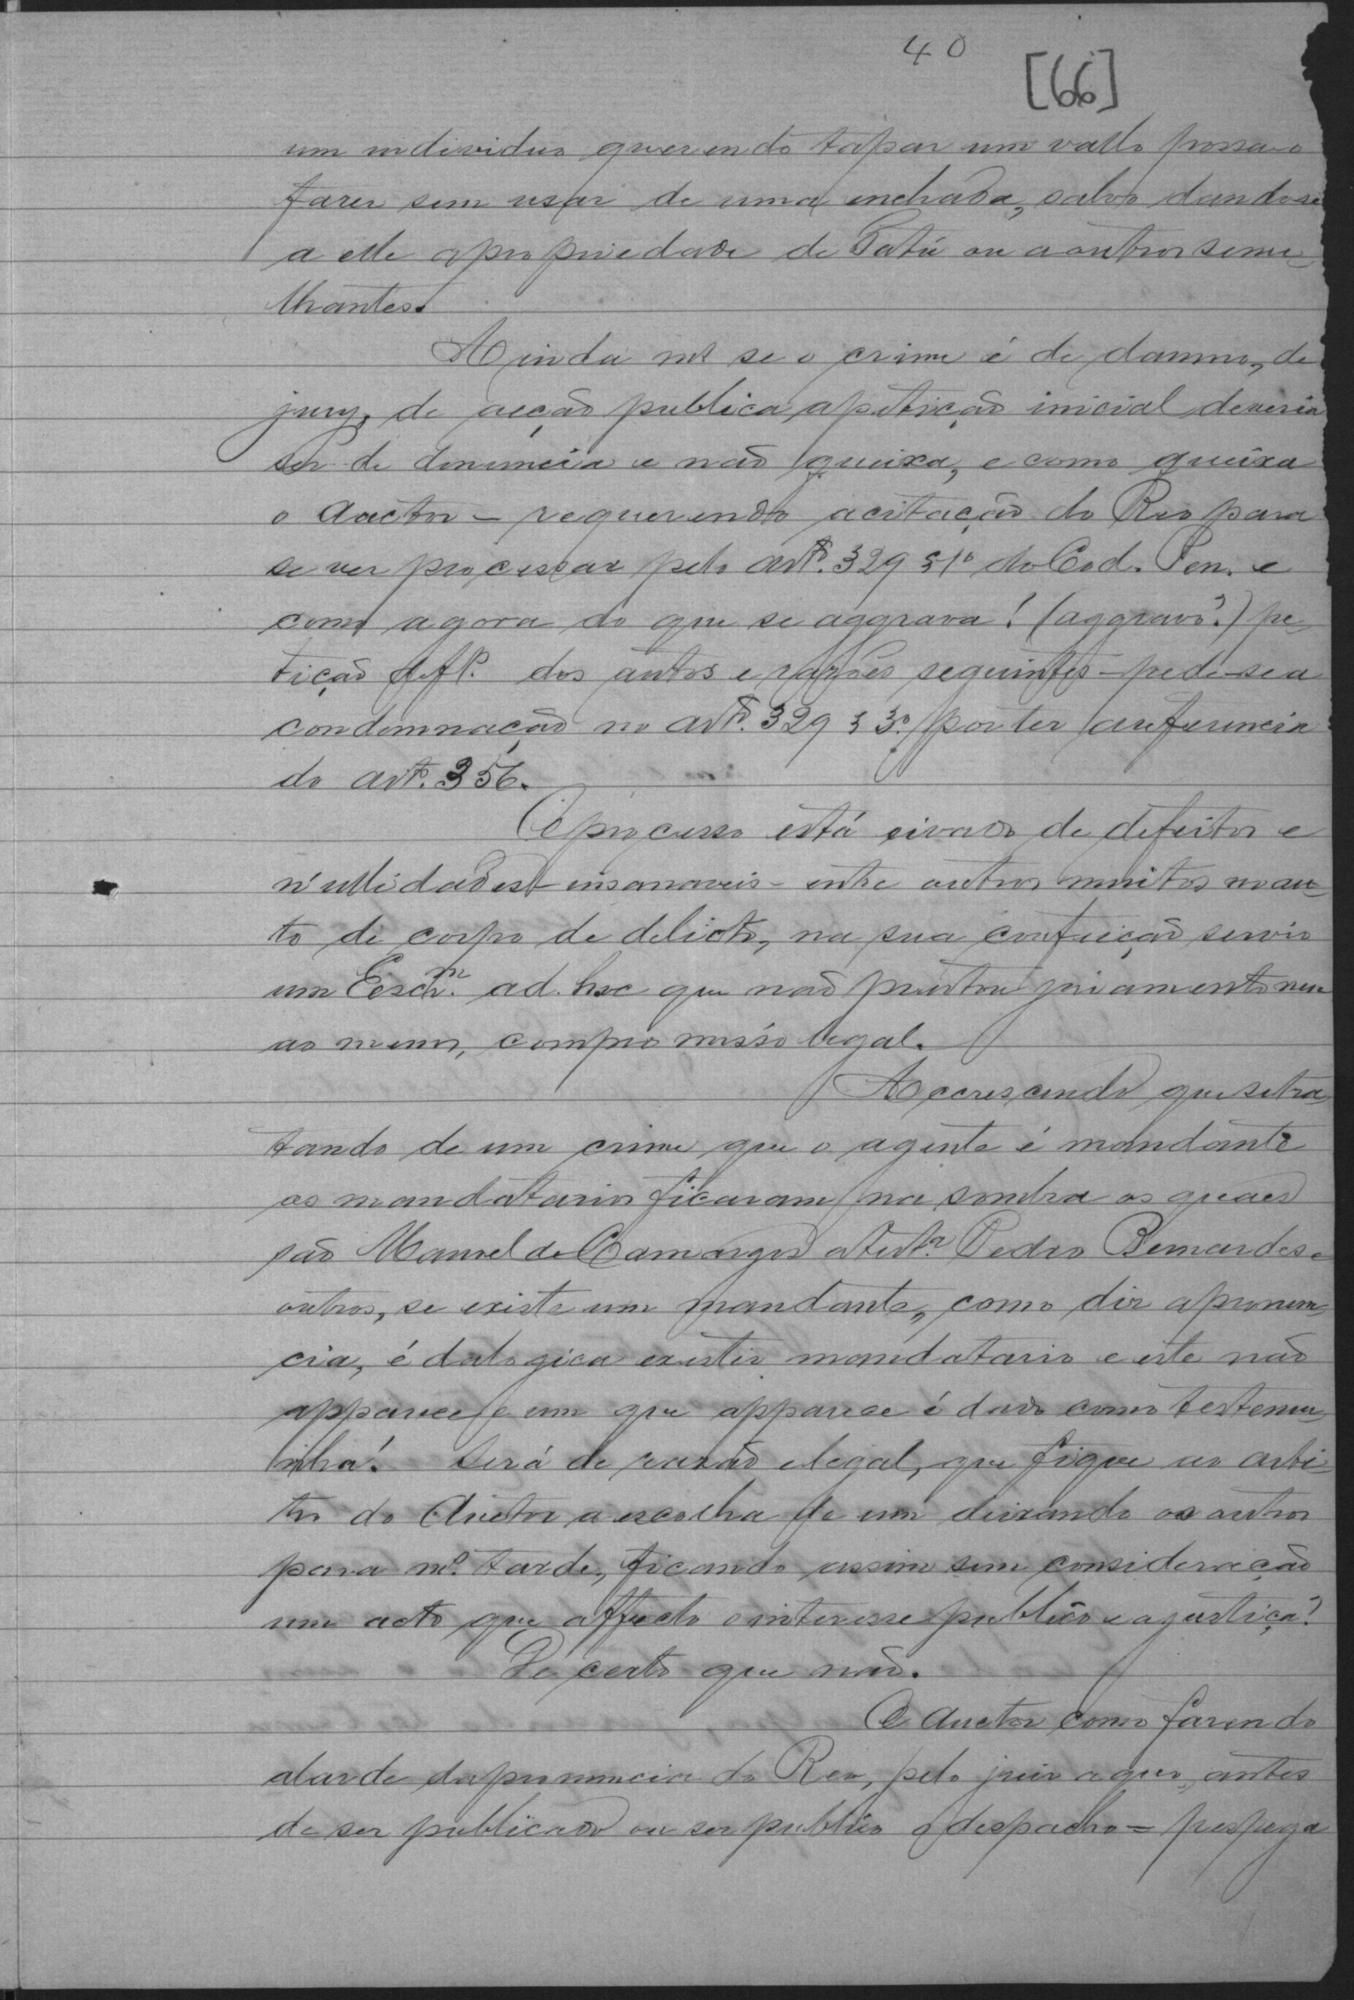 40
[66]
um individuo querendo tapar um vallo possa o
fazer sem usar de uma enchada, salvo dando se
a elle a propriedade de Tatú ou a outros seme-
lhantes.
Ainda mt se o crime é de damno, de
jury, de acção publica a petição inicial deveria
ser de denuncia e não queixa, e como queixa
o Auctor – requerendo a citação do Reo para
se ver processar pelo artº. 329 § 1º do Cod. Pen. e
como agora do que se aggrava! (aggravo?) pe-
tição de fl. dos autos e razões seguintes – pede-se a
condemnação no artº. 329 § 3º. por ter a referencia
do artº. 356.
O processo está eivado de defeitos e
nullidades – insanaveis – entre outros muitos no au-
to de corpo de delicto, na sua confecção servio
um Escrm. ad hoc que não prestou juramento nem
ao menos, compromisso legal.
Accrescendo que se tra-
tando de um crime que o agente é mandante
os mandatarios ficaram na sombra os quaes
são Manoel de Camargos a testª. Pedro Bernardes e
outros, se existe um mandante, como diz a pronun-
cia, é da logica existir mandatario e este não
apparece e um que apparece é dado como testemu-
nha! Será de razão e legal, que fique ao arbi-
trio do Auctor a escolha de um deixando os outros
para mº. tarde, ficando assim sem consideração
um acto que affecta o interesse publico e a justiça?
De certo que não.
O Auctor como fazendo
alarde da pronuncia do Reo, pelo juiz a quo, antes
de ser publicado ou ser publico o despacho – pespega